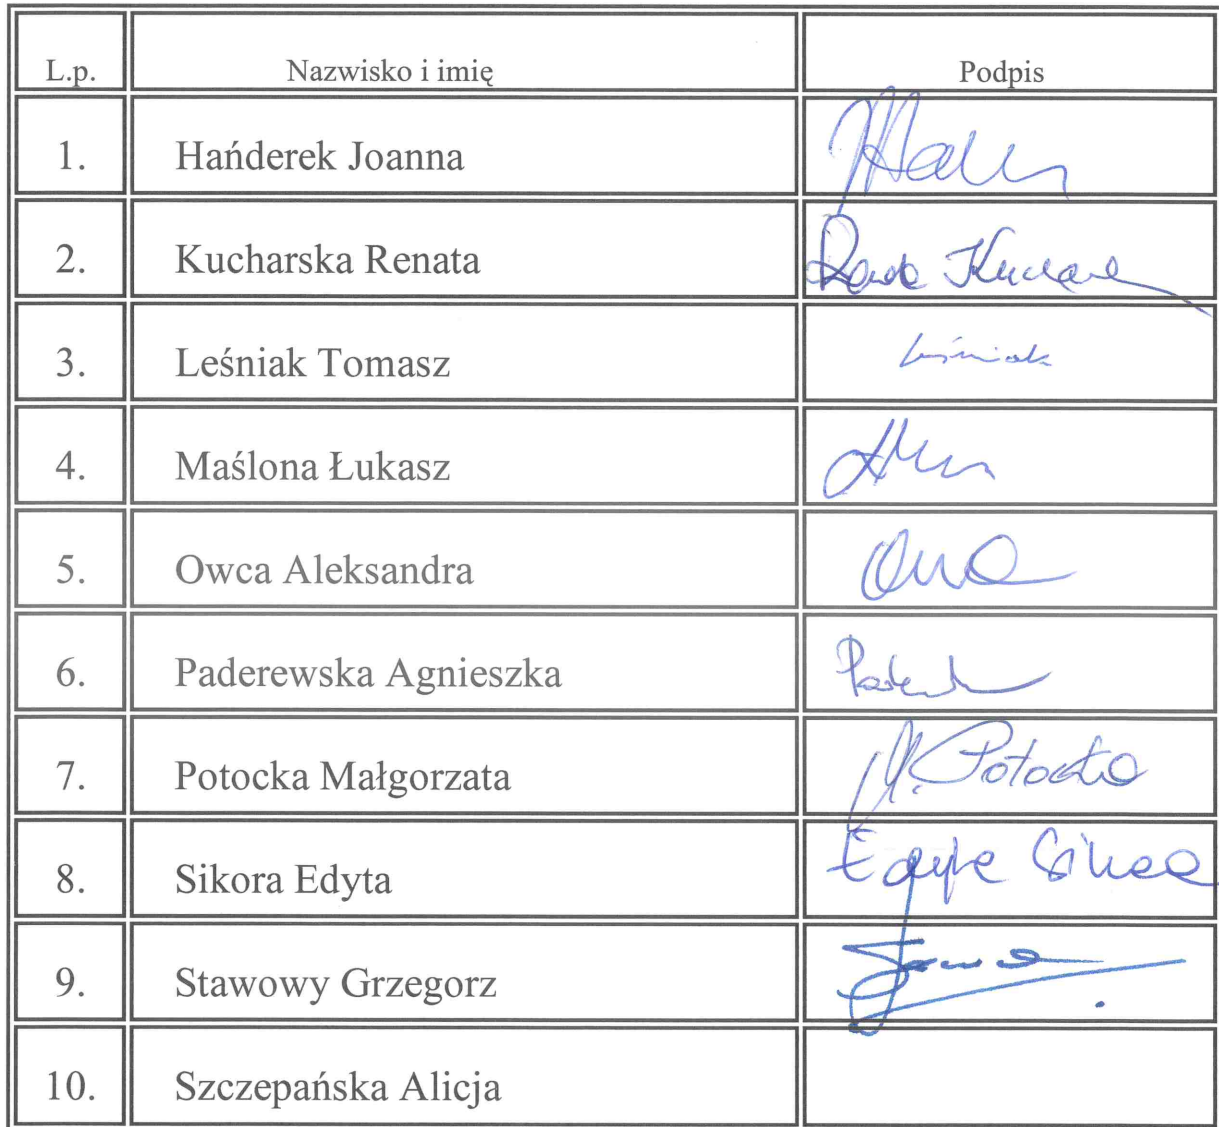 L.p. Nazwisko i imię Podpis
1. Hańderek Joanna
2. Kucharska Renata
3. Leśniak Tomasz Leśniak
4. Maślona Łukasz
5. Owca Aleksandra
6. Paderewska Agnieszka
7. Potocka Małgorzata M. Potocka
8. Sikora Edyta Edyta Sikora
9. Stawowy Grzegorz
10. Szczepańska Alicja